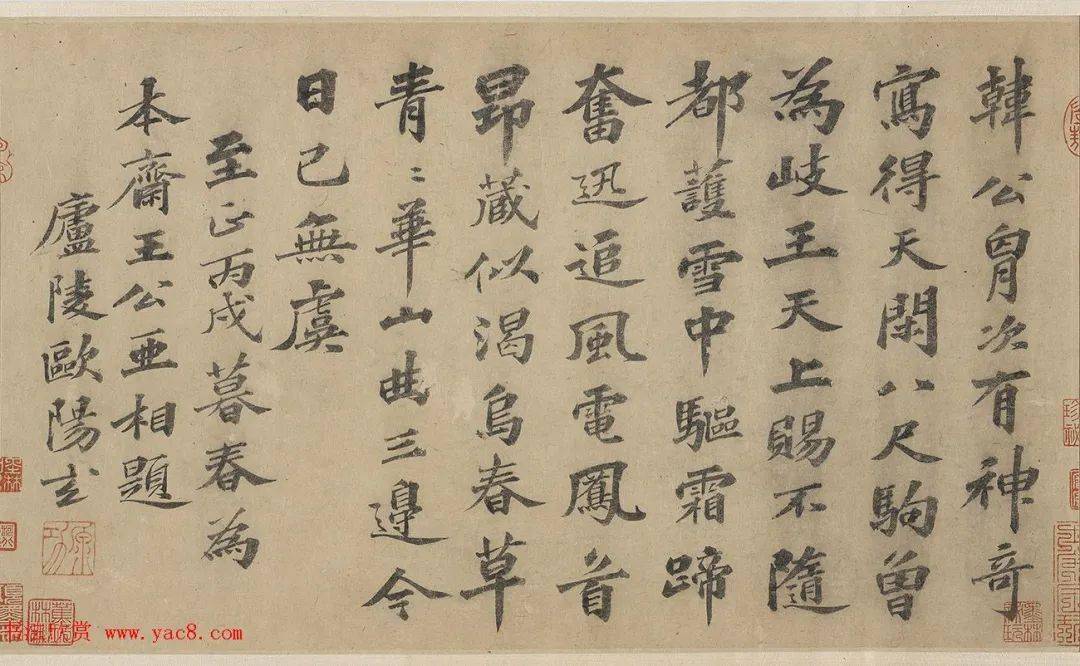 韓公胷次有神奇
寫得天閑八尺駒曽
為岐王天上賜不隨
都護雪中驅霜蹄
奮迅追風電鳳首
昂藏似渴烏春草
青〻華山曲三邊今
日已無虞
至正丙戌暮春為
本齋王公亞相題
廬陵歐陽玄
书法欣赏 www.yac8.com